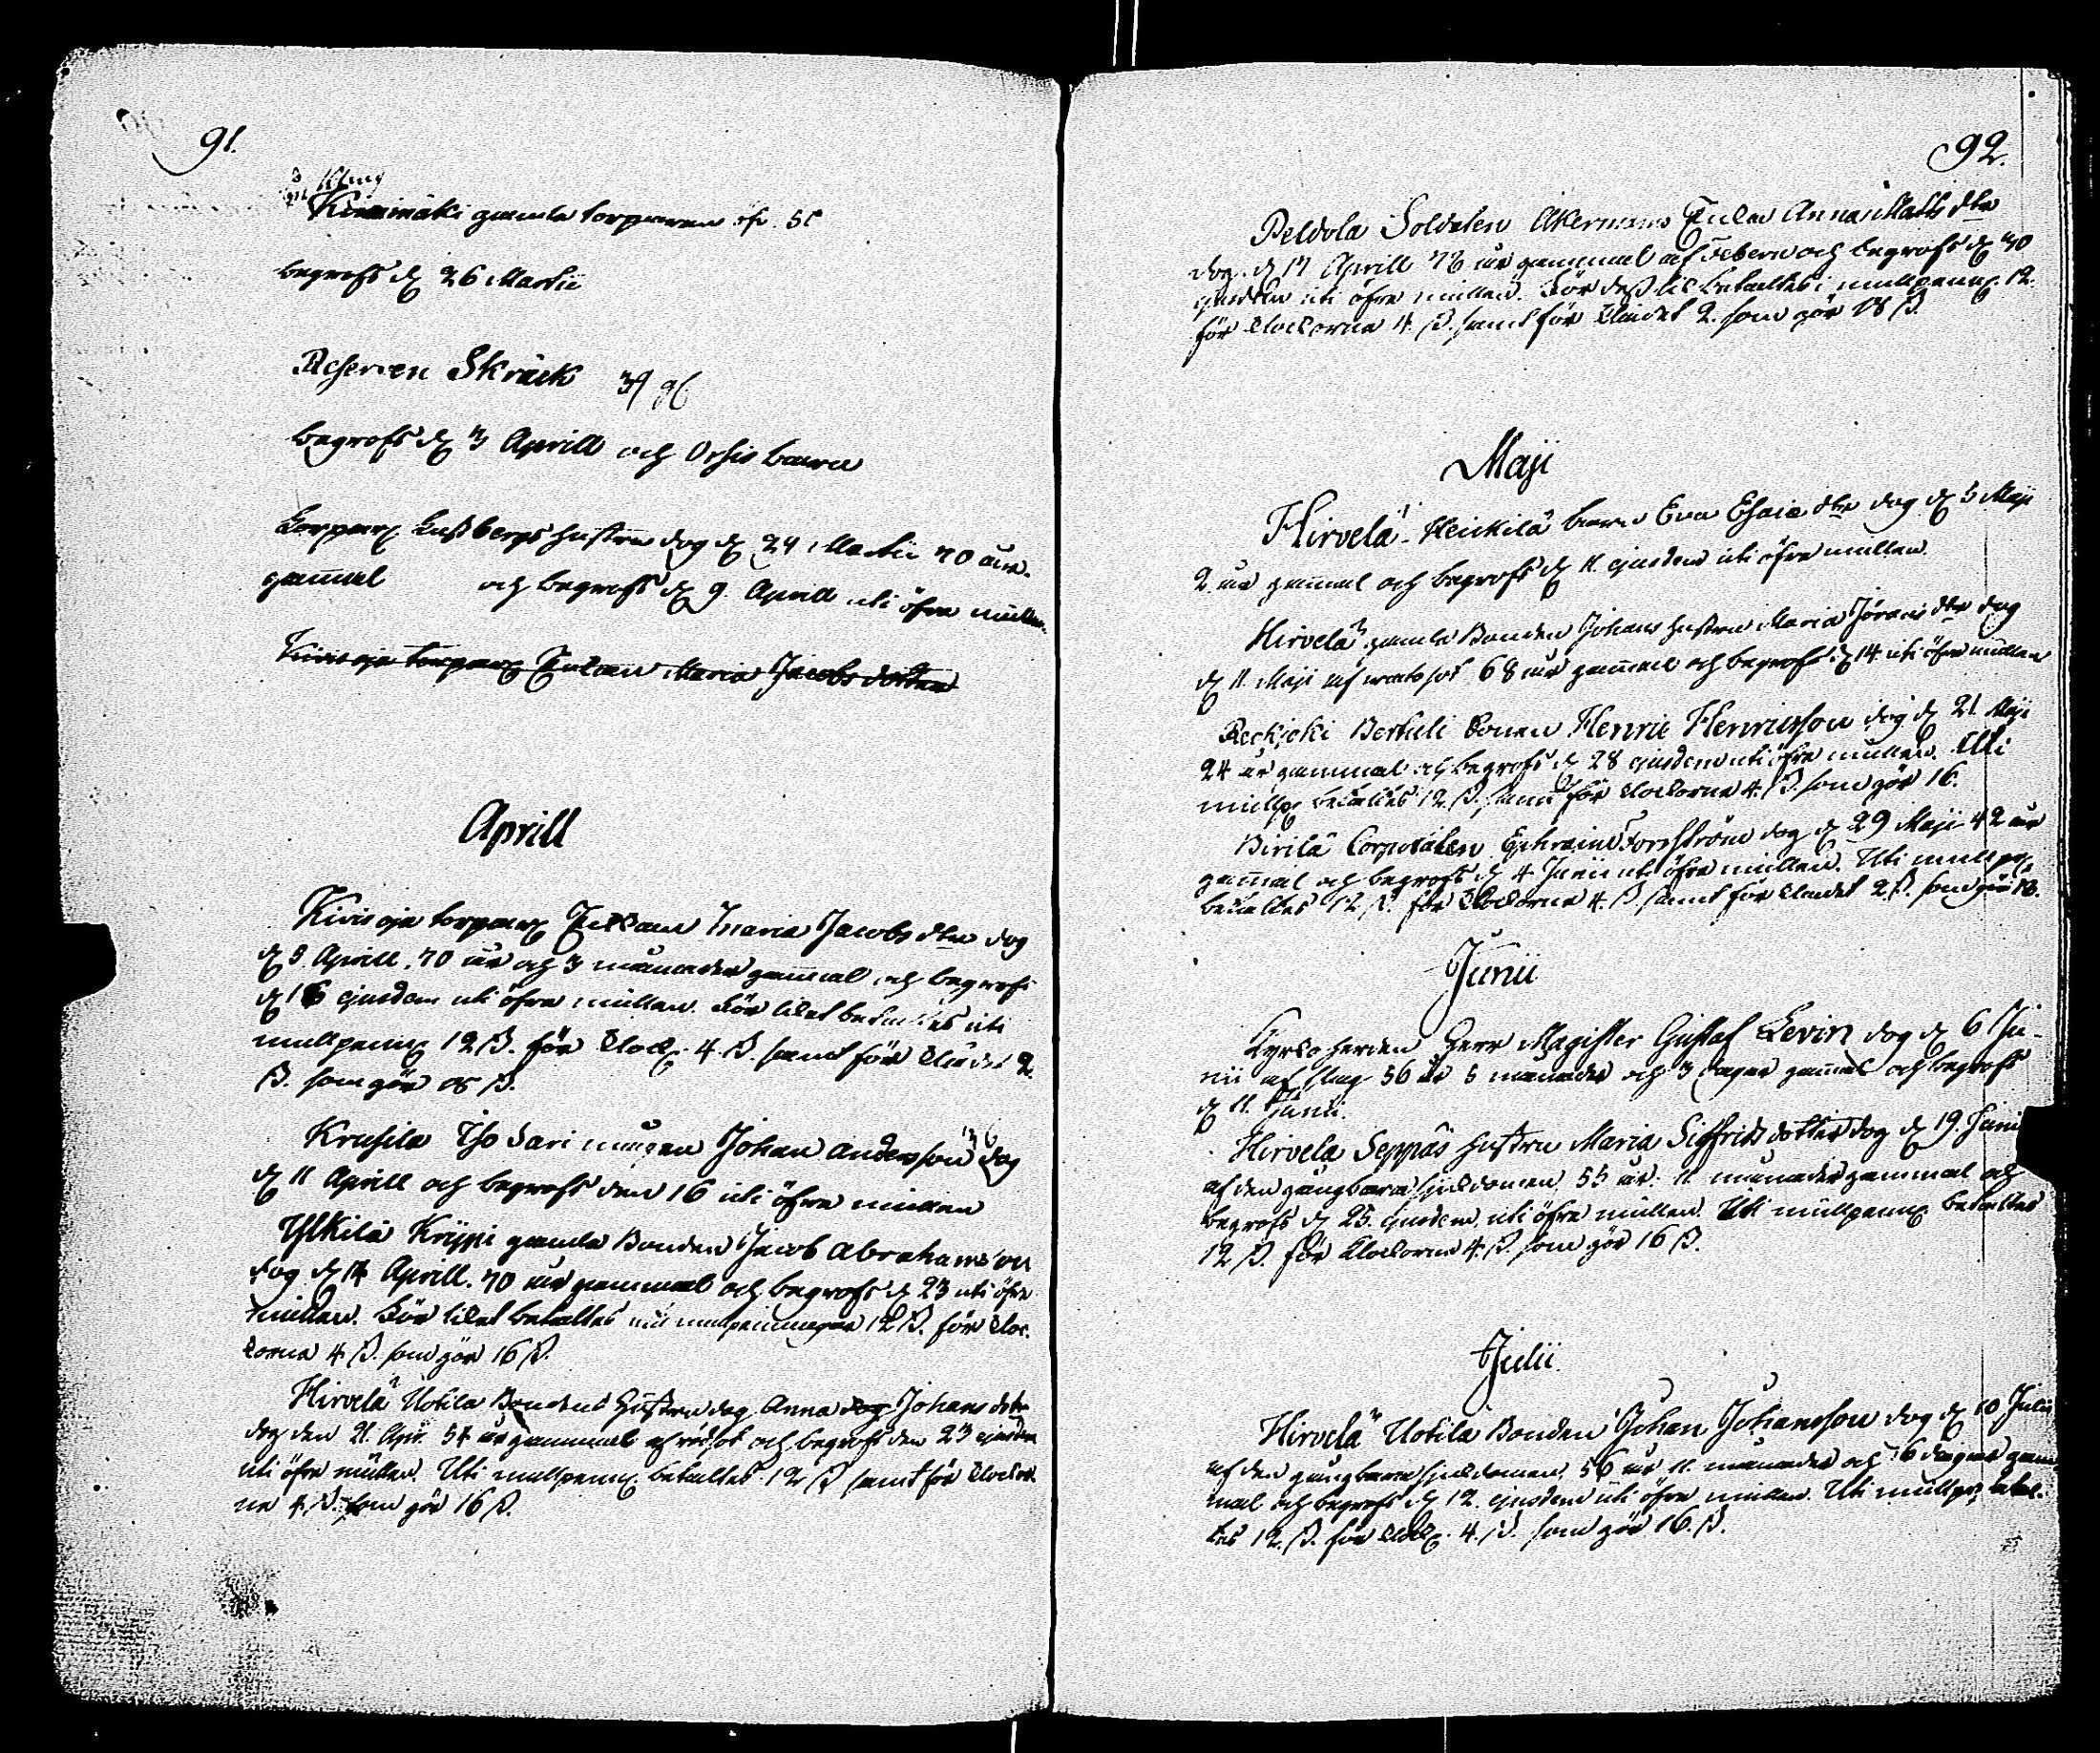 91.
Kinnimäki gamla torparen
begrofs d. 26 Martii
Reserven Skräck
begrofs d. 3 Aprill och Orsis barn
Torpar. hustru dog d. 24 Martii 70 åhr
gammal och begrofs d. 9. Aprill uti öfre mullen
Kivioja torpar. Enkan Maria Jacobs dotter
Aprill
Kivioja torpar. Enkan Maria Jacobs dtr dog
d. 8 Aprill. 70 år och 3 månader gammal och begrofs
d. 16 ejusdem uti öfre mullen. För liket betaltes uti
mullpenn. 12 ß. för klock. 4 ß. samt för klädet 2
ß. som gör 18 ß.
Krusila Iso Sari Johan Andersson dog
d. 11 Aprill och begrofs den 16 uti öfre mullen
Ylkilä Knjpi gamla Bonden Jacob Abrahamsson
dog d. 14 Aprill. 70 år gammal och begrofs d. 23 uti öfre
mullen. För liket betaltes uti mullpenningar 12 ß. för kloc-
korna 4 ß. som gör 16 ß.
Hirvelä Uotila Bondens hustru dog Anna dog Johans dotr
dog den 21. Apr. 54 år gammal af rödsot och begrofs den 23 ejusdem
uti öfre mullen. Uti mullpenn. betaltes 12 ß samt för klockor-
na 4 ß. som gör 16 ß.
92.
Peldola Soldaten Åkermans Enka Anna Matts dtr
dog d. 17 Aprill 76 år gammal af feber och begrofs d. 30
ejusdem uti öfre mullen. För dess lik betaltes i mullpenn. 12.
för klockorna 4. ß. samt för klädet 2. som gör 18 ß.
Maji
Hirvelä Heickilä barn Eva Esaiæ dtr dog d. 5 Maji
2 år gammal och begrofs d. 11. ejusdem uti öfre mullen.
Hirvelä gamla Bonden Johans hustru Maria Jörans dtr dog
d. 11. Maji af 68 år gammal och begrofs d. 14 uti öfre mullen
Reckjoki Bertuli sonen Henric Henricsson dog d. 21. Maji
24 år gammal och begrofs d. 28 ejusdem uti öfre mullen. Uti
mullp. betaltes 12. ß. samt för klockorna 4. ß. som gör 16.
Birilä Corporalen Ephraim Forsström dog d. 29 Maji 42 år
gammal och begrofs d. 4 Junii uti öfre mullen. Uti mullpn.
betaltes 12 ß. för klockorna 4. ß. samt för klädet 2 ß. som gör 18.
Junii
Kyrkoherden Herr Magister Gustaf Levin dog d. 6 Ju-
nii af slag 56 år 5 månader och 3 dagar gammal och begrofs
d. 11. Junii.
Hirvela Seppäs hustru Maria Sigfrids dotter dog d. 19. Junii
af den gångbara sjukdomen, 55 år. 11. månader gammal och
begrofs d. 25. ejusdem uti öfre mullen. Uti mullpenn. betaltes
12 ß. för klockorna 4. ß. som gör 16 ß.
Julii.
Hirvelä Uotila Bonden Johan Johansson dog d. 10 Julii
af den gångbara sjukdomen, 56 år 11. månader och 16 dagar gam-
mal och begrofs d. 12. ejusdem uti öfre mullen. Uti mullpn. betal-
tes 12. ß. för klock. 4. ß. som gör 16. ß.